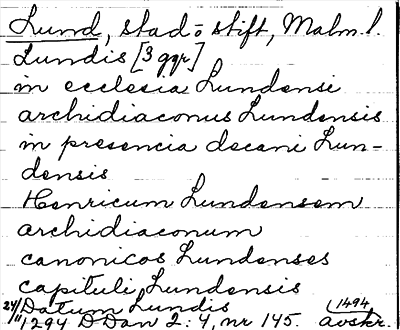 Lund, stad o stift, Malm. l.
Lundis [3 ggr]
in ecclesia Lundensi
archidiaconus Lundensis
in presencia decani Lun-
densis
Henricum Lundensem
archidiaconum
canonicos Lundenses
capituli Lundensis
Datum Lundis 1494
24/11 1294 DDan 2:4, nr 145. avskr.